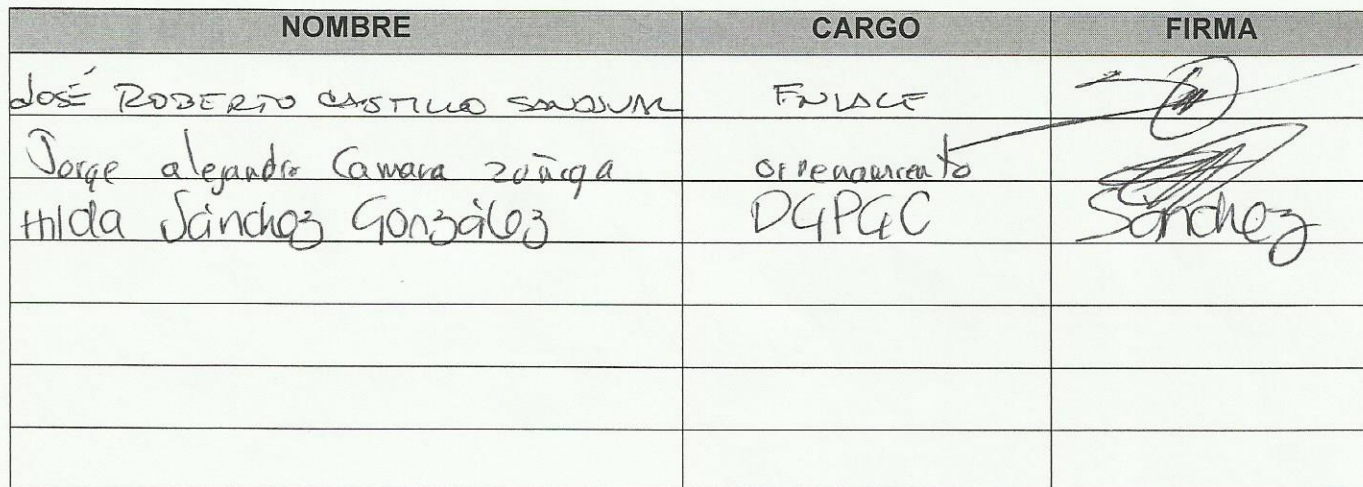 NOMBRE CARGO FIRMA
JOSÉ ROBERTO CASTILLO SANDOVAL ENLACE
Jorge alejandro Camara zuñiga ordenamiento
Hilda Sánchez González DGPGC Sánchez